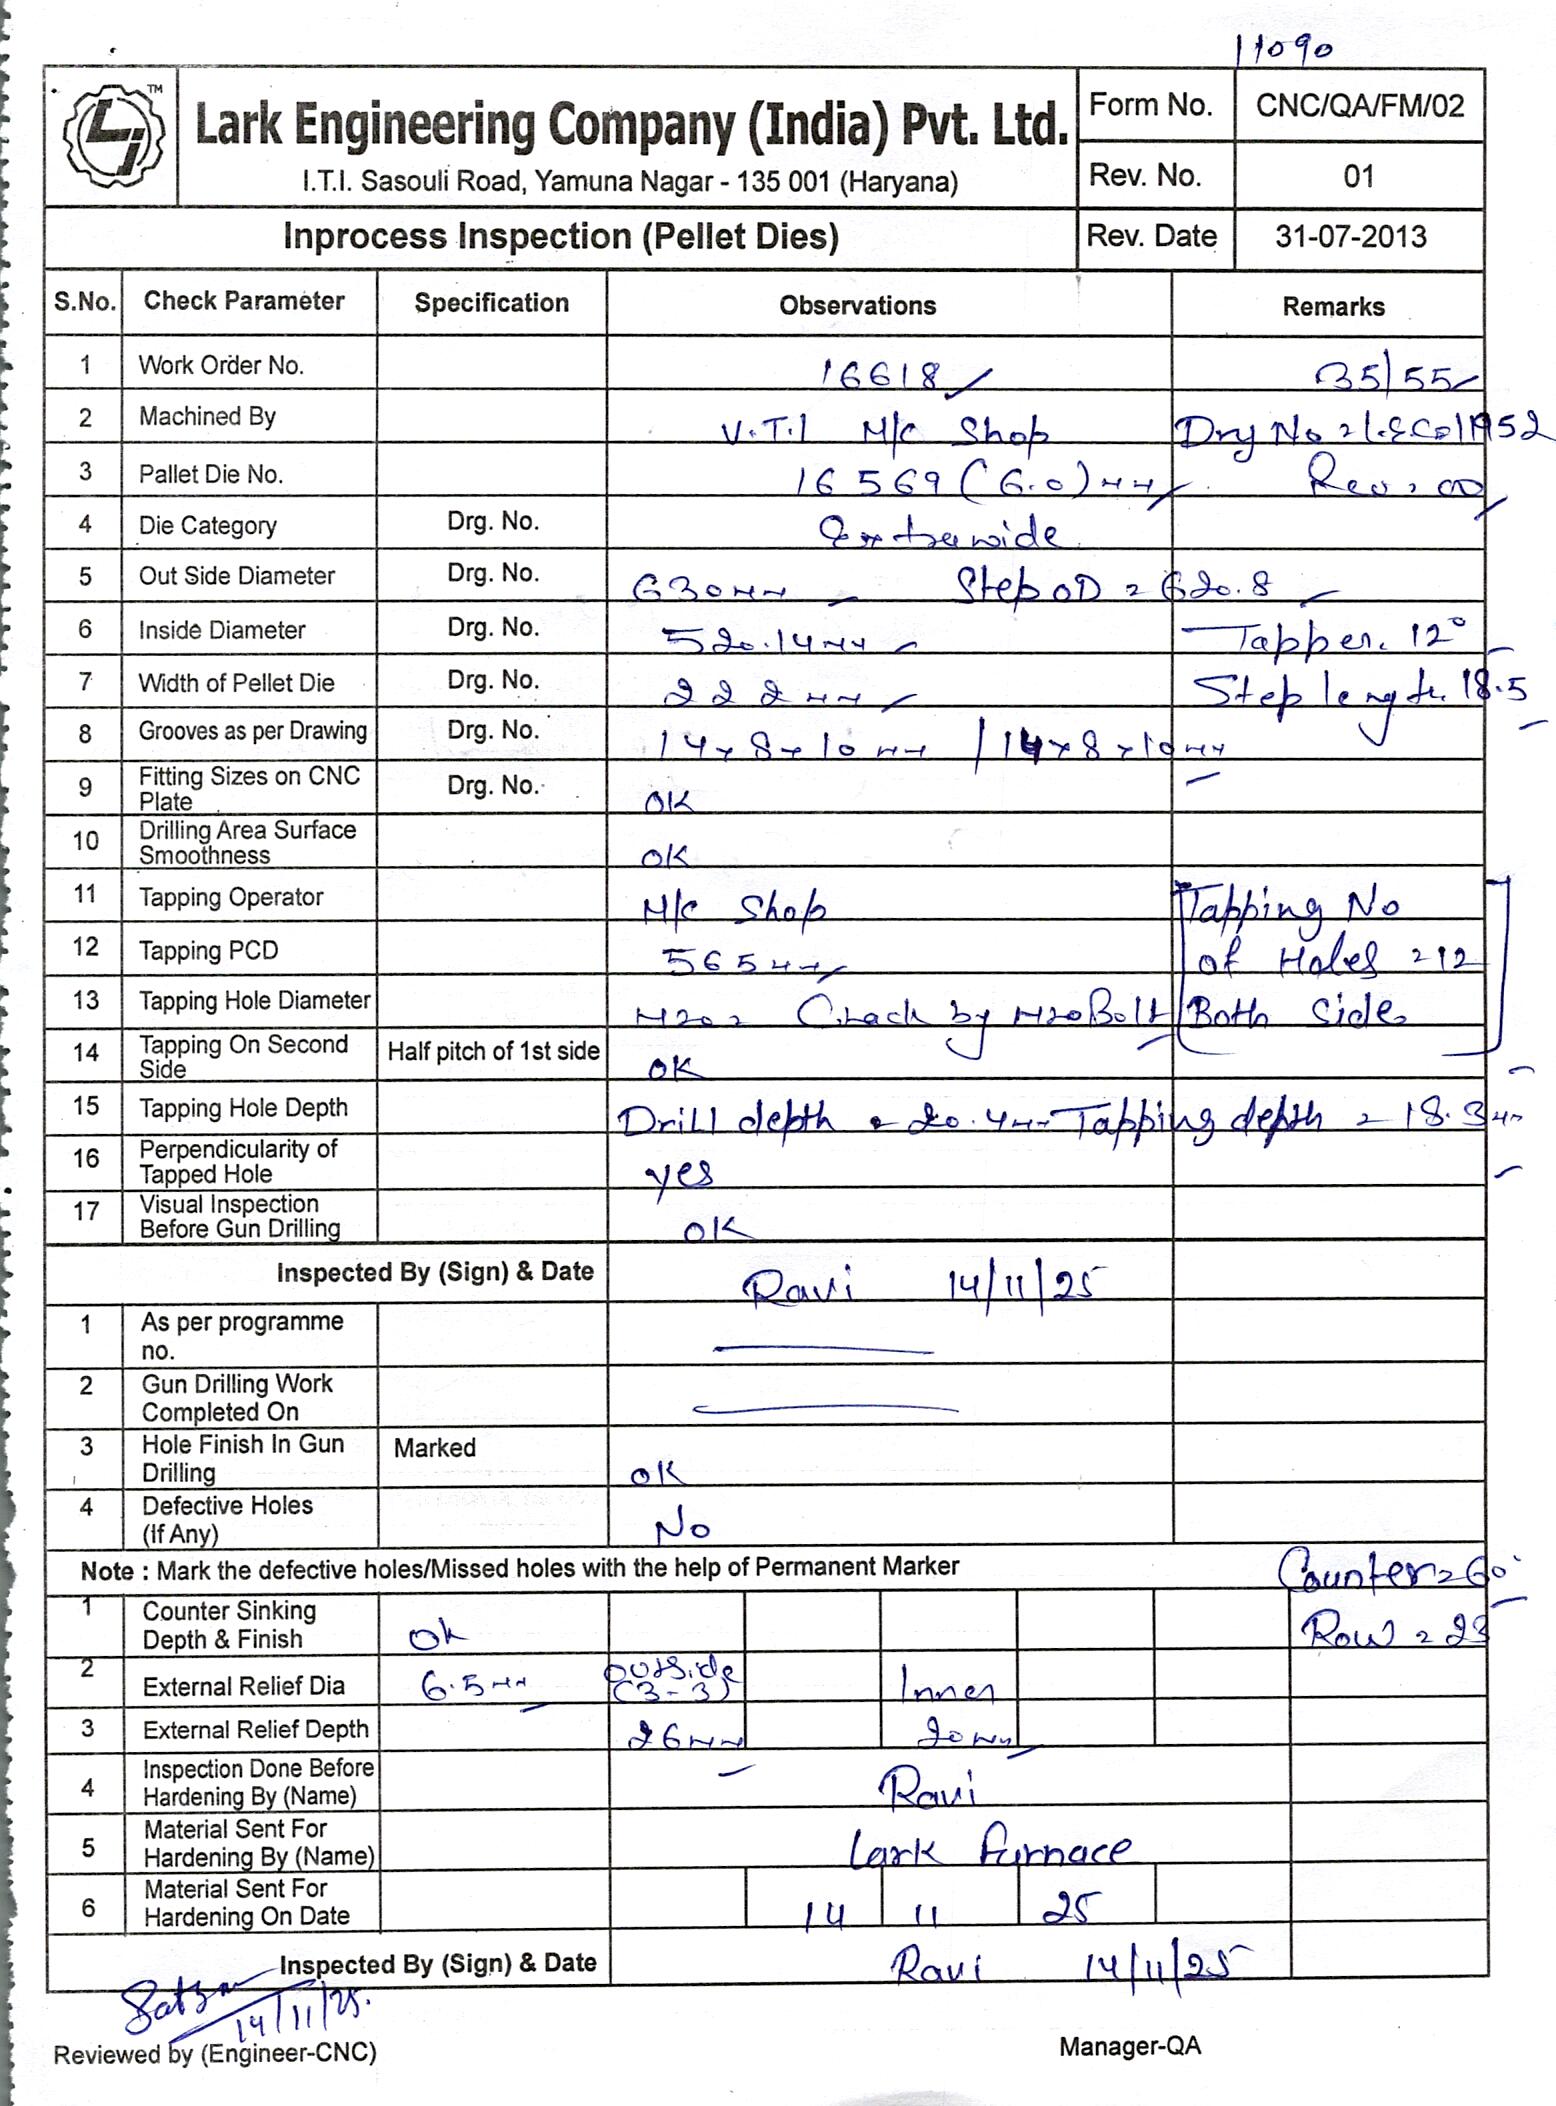 11090
TM
Lark Engineering Company (India) Pvt. Ltd.
I.T.I. Sasouli Road, Yamuna Nagar - 135 001 (Haryana)
Form No. CNC/QA/FM/02
Rev. No. 01
Inprocess Inspection (Pellet Dies) Rev. Date 31-07-2013
S.No. Check Parameter Specification Observations Remarks
1 Work Order No. 16618 35/55
2 Machined By V.T.I M/c Shop
3 Pallet Die No. 16569 (6.0) mm Rev = 00
4 Die Category Drg. No. Extrawide
5 Out Side Diameter Drg. No. 630mm Step OD = 620.8
6 Inside Diameter Drg. No. 520.14mm Tapper. 12°
7 Width of Pellet Die Drg. No. 222mm Step length. 18.5
8 Grooves as per Drawing Drg. No. 14x8x10mm / 14x8x10mm
9 Fitting Sizes on CNC Plate Drg. No. OK
10 Drilling Area Surface Smoothness OK
11 Tapping Operator M/c Shop Tapping No
12 Tapping PCD 565mm of Holes = 12
13 Tapping Hole Diameter M20 = Chack by M20 Bolt Both Side
14 Tapping On Second Side Half pitch of 1st side OK
15 Tapping Hole Depth Drill depth = 20.4mm Tapping depth = 18.3mm
16 Perpendicularity of Tapped Hole yes
17 Visual Inspection Before Gun Drilling OK
Inspected By (Sign) & Date Ravi 14/11/25
1 As per programme no.
2 Gun Drilling Work Completed On
3 Hole Finish In Gun Drilling Marked OK
4 Defective Holes (If Any) No
Note : Mark the defective holes/Missed holes with the help of Permanent Marker Counter = 60°
1 Counter Sinking Depth & Finish Ok Row = 23
2 External Relief Dia 6.5mm outside (3-3) Inner
3 External Relief Depth 26mm 20mm
4 Inspection Done Before Hardening By (Name) Ravi
5 Material Sent For Hardening By (Name) Lark furnace
6 Material Sent For Hardening On Date 14 11 25
Inspected By (Sign) & Date Ravi 14/11/25
14/11/25.
Reviewed by (Engineer-CNC) Manager-QA